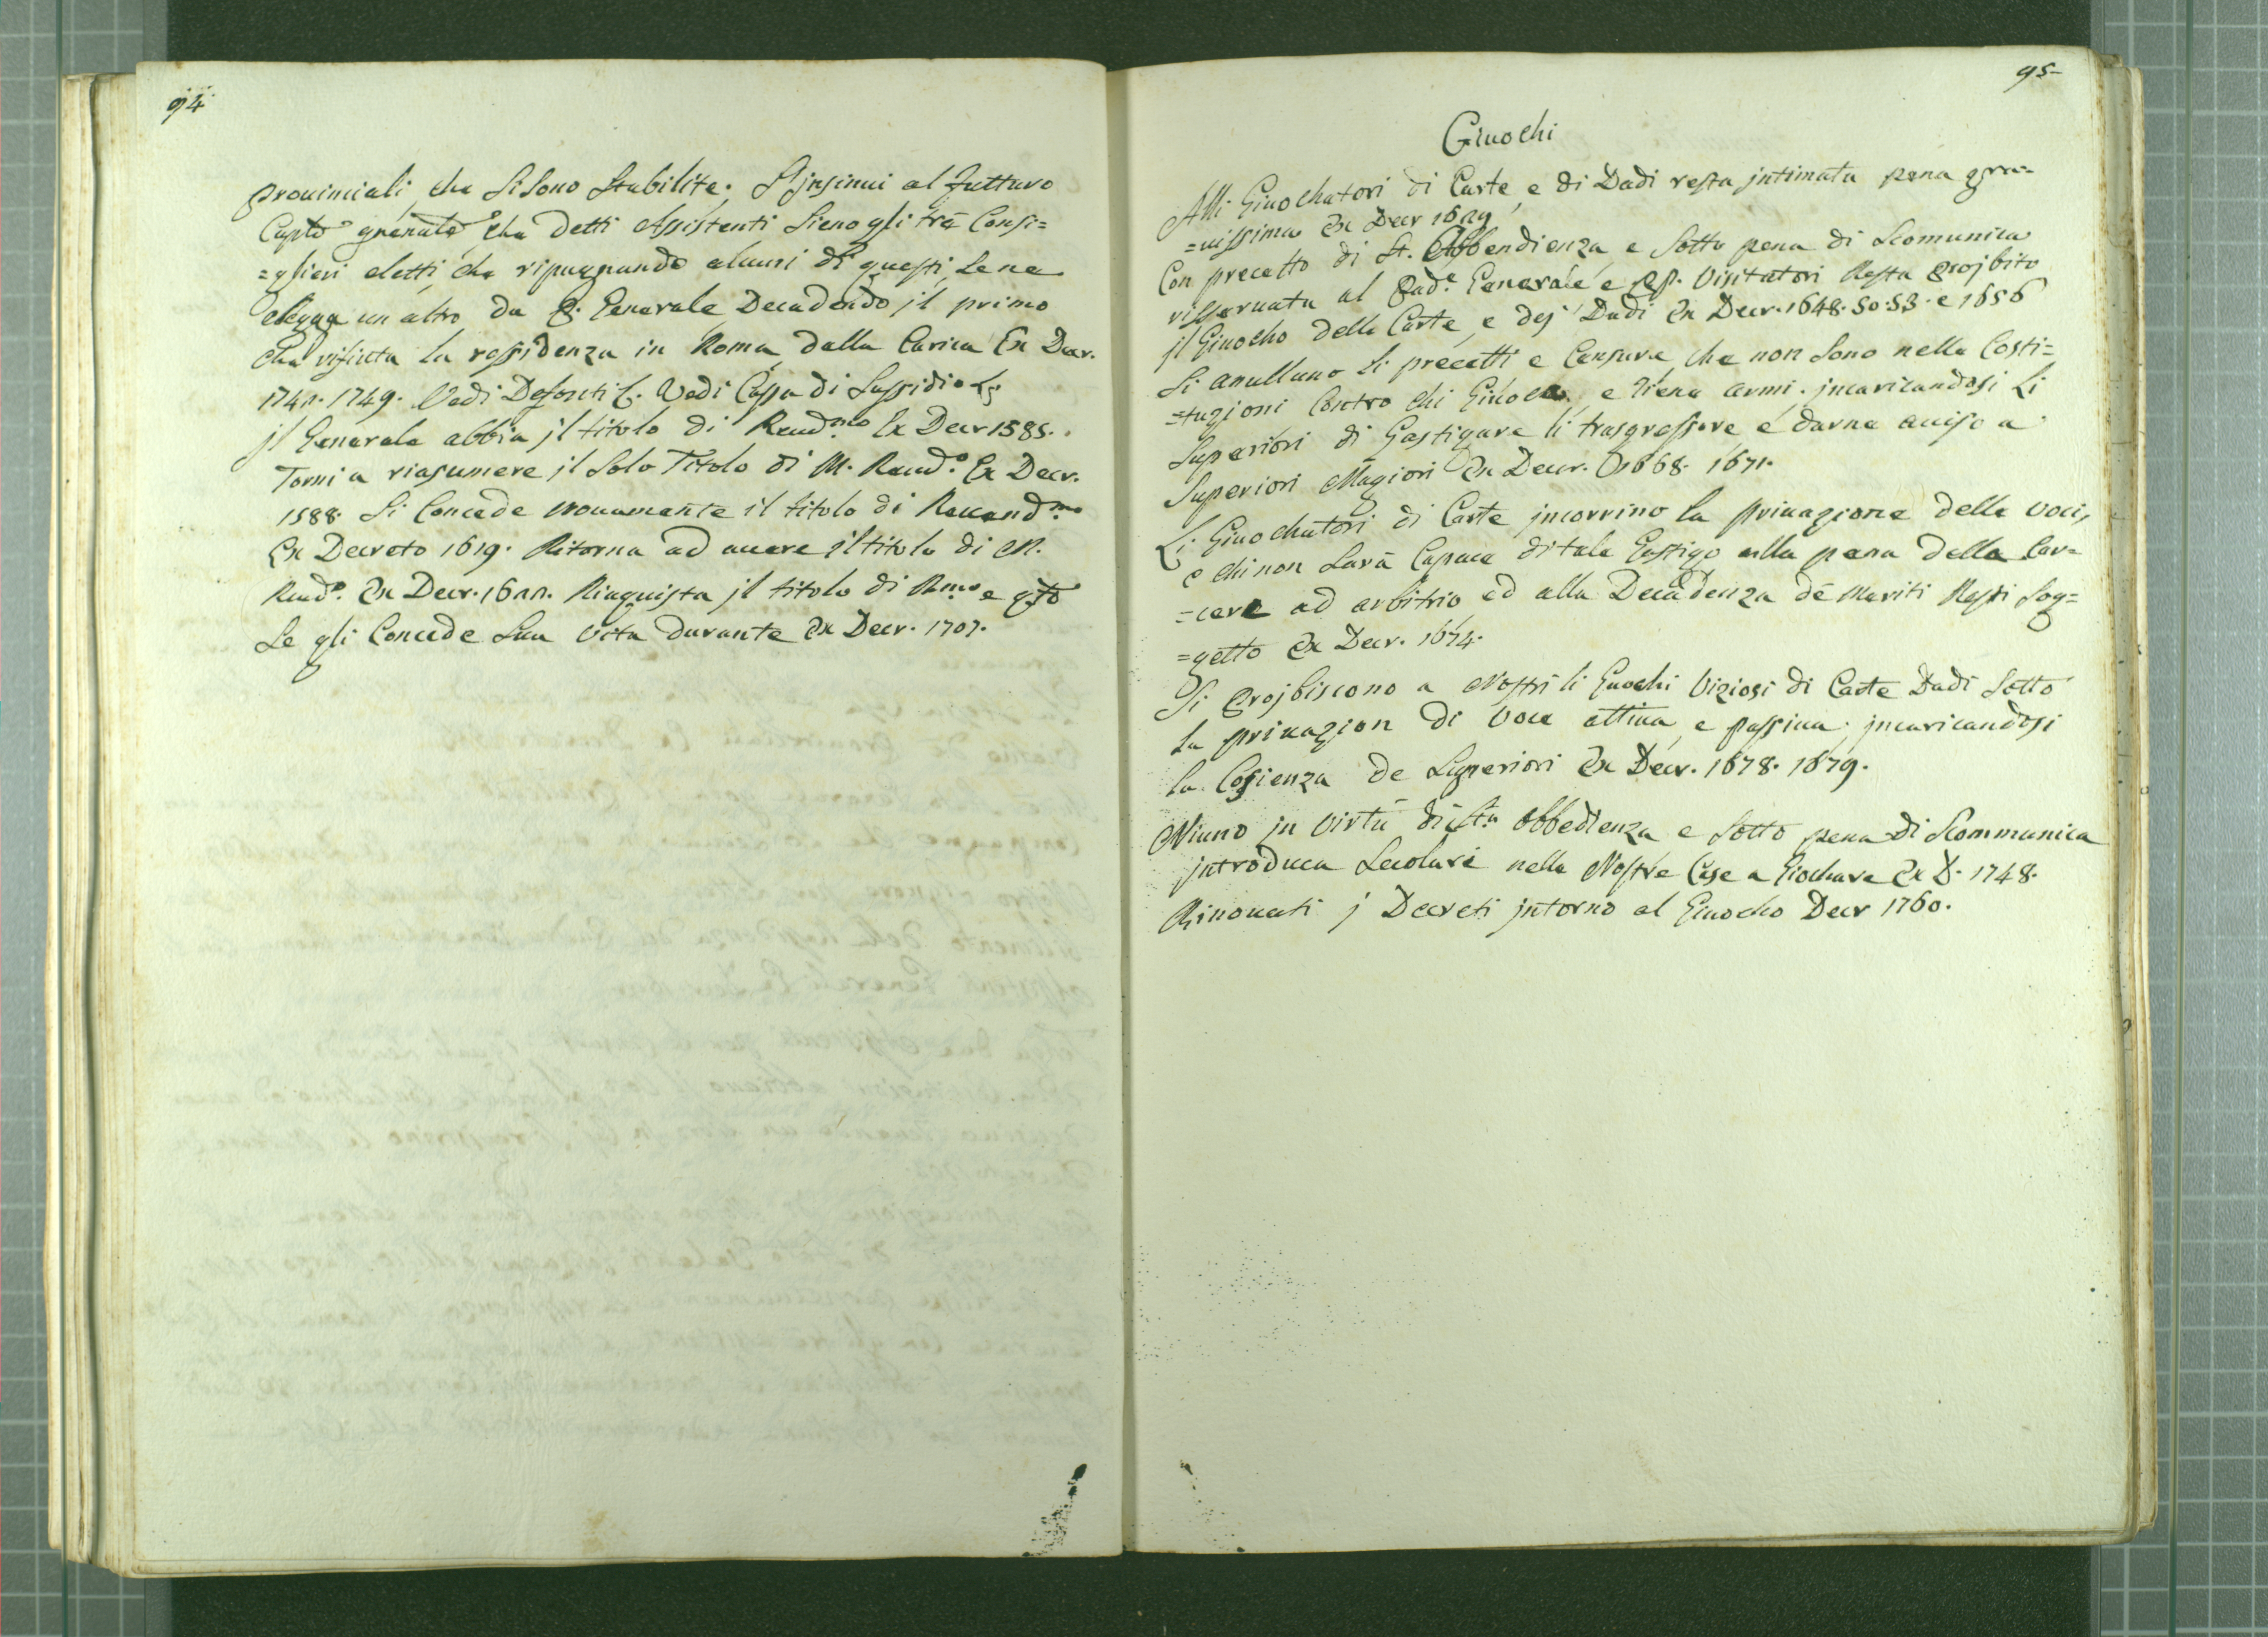 94
Prouinciali, che si sono stabilite. S'jnsinui al futturo
Capto generale che detti Assistenti sieno gli trè Consi=
=glieri eletti, che ripugnando alcuni di questi, se ne
elegga un altro da P. Generale Decadendo jl primo
che rifiuta la ressidenza in Roma dalla Carica Ex Decr.
1742. 1749. Vedi Defonti C. Vedi Cassa di Sussidio
jl Generale abbia jl titolo di Reud.mo Ex Decr 1585.
Torni a riasumere jl solo Titolo di M. Reud.o Ex Decr.
1588. Si Concede nouamente il titolo di Reuerend.mo
Ex Decreto 1619. Ritorna ad auere il titolo di M.
Reud.o Ex Decr. 1622. Riaquista jl titolo di R.mo e q.to
se gli Concede sua vita durante Ex Decr. 1707.
95
Giuochi
Alli Giuochatori di Carte, e di Dadi resta jntimata pena gra=
=uissima Ex Decr 1629
Con precetto di St. Obbendienza, e sotto pena di Scomunica
risseruata al Pad.e Generale e PP. Visitatori Resta Projbito
jl Giuocho delle Carte, e dej Dadi Ex Decr. 1648. 50. 53. e 1656
Si anullano li precetti e Censure, che non sono nelle Costi=
=tuzioni Contro chi Giuoca, e tiene armi. jncaricandosi li
Superiori di Gastigare li trasgressore e darne auiso a
Superiori Magiori Ex Decr. 1668. 1671.
Li Giuochatori di Carte jncorrino la priuazione delle voci,
e chi non sarà Capace di tale Gastigo alla pena della Car=
=cere ad arbitrio, ed alla Decadenza de Meriti Resti sog=
=getto Ex Decr. 1674.
Si Projbiscono a Nostri li Guochi Viziosi di Carte Dadi sotto
la priuazion di Voce attiua, e passiua, jncaricandosi
la Cosienza de Superiori Ex Decr. 1678. 1679.
Niuno jn virtù di S.ta Obbedienza e sotto pena di Scommunica
jntroduca Secolari nelle Nostre Case a Giochare Ex D. 1748.
Rinouati j Decreti jntorno al Giuocho Decr 1760.